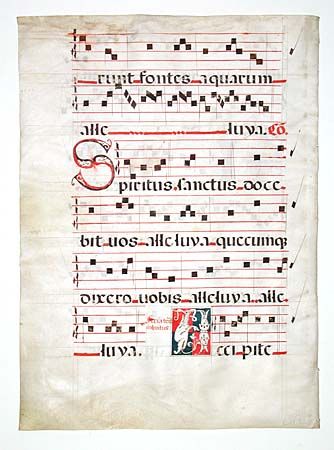 runt fontes aquarum
alle luya. Co.
Spiritus sanctus doce
bit uos alleluya quecumq
dixero uobis alleluya alle
luya. Accipite